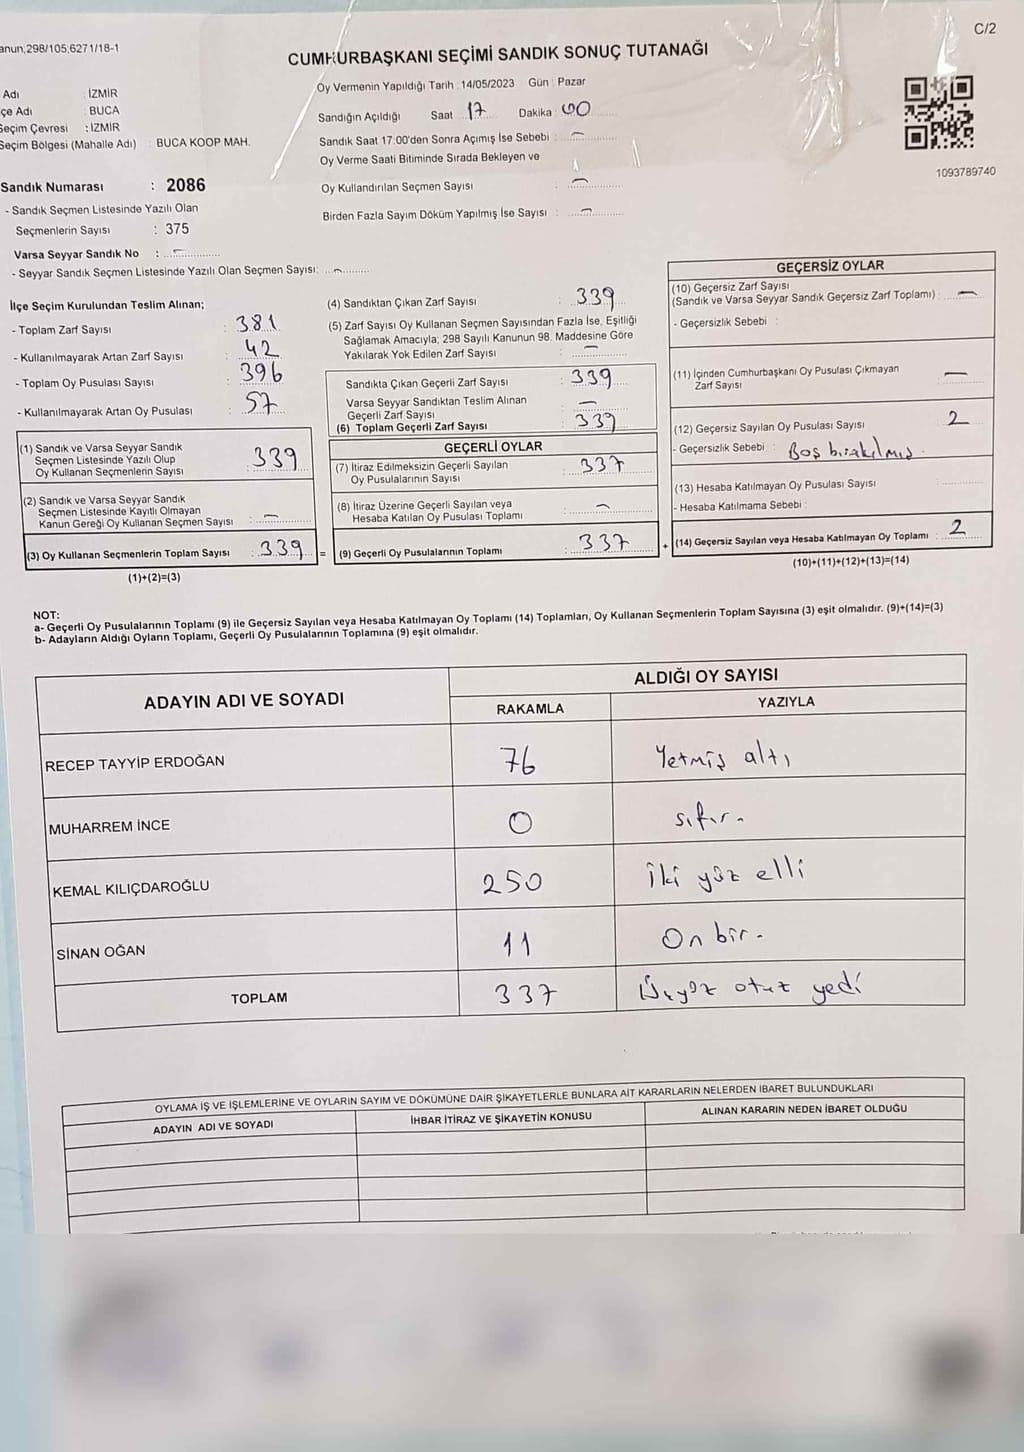 C/2
anun;298/105;6271/18-1
CUMHURBAŞKANI SEÇİMİ SANDIK SONUÇ TUTANAĞI
Adı : İZMİR
çe Adı : BUCA
Seçim Çevresi : İZMİR
Seçim Bölgesi (Mahalle Adı) : BUCA KOOP MAH.
Oy Vermenin Yapıldığı Tarih : 14/05/2023 Gün : Pazar
Sandığın Açıldığı Saat : 17 Dakika : 00
Sandık Saat 17:00'den Sonra Açımış İse Sebebi : —
Oy Verme Saati Bitiminde Sırada Bekleyen ve
Oy Kullandırılan Seçmen Sayısı : —
Birden Fazla Sayım Döküm Yapılmış İse Sayısı : —
1093789740
Sandık Numarası : 2086
- Sandık Seçmen Listesinde Yazılı Olan
Seçmenlerin Sayısı : 375
Varsa Seyyar Sandık No : —
- Seyyar Sandık Seçmen Listesinde Yazılı Olan Seçmen Sayısı: —
İlçe Seçim Kurulundan Teslim Alınan;
- Toplam Zarf Sayısı : 381
- Kullanılmayarak Artan Zarf Sayısı : 42
- Toplam Oy Pusulası Sayısı : 396
- Kullanılmayarak Artan Oy Pusulası : 57
(1) Sandık ve Varsa Seyyar Sandık
Seçmen Listesinde Yazılı Olup
Oy Kullanan Seçmenlerin Sayısı : 339
(2) Sandık ve Varsa Seyyar Sandık
Seçmen Listesinde Kayıtlı Olmayan
Kanun Gereği Oy Kullanan Seçmen Sayısı : —
(3) Oy Kullanan Seçmenlerin Toplam Sayısı : 339 =
(1)+(2)=(3)
(4) Sandıktan Çıkan Zarf Sayısı : 339
(5) Zarf Sayısı Oy Kullanan Seçmen Sayısından Fazla İse, Eşitliği
Sağlamak Amacıyla; 298 Sayılı Kanunun 98. Maddesine Göre
Yakılarak Yok Edilen Zarf Sayısı : —
Sandıkta Çıkan Geçerli Zarf Sayısı : 339
Varsa Seyyar Sandıktan Teslim Alınan
Geçerli Zarf Sayısı : —
(6) Toplam Geçerli Zarf Sayısı : 339
GEÇERLİ OYLAR
(7) İtiraz Edilmeksizin Geçerli Sayılan
Oy Pusulalarının Sayısı : 337
(8) İtiraz Üzerine Geçerli Sayılan veya
Hesaba Katılan Oy Pusulası Toplamı : —
(9) Geçerli Oy Pusulalarının Toplamı : 337 +
GEÇERSİZ OYLAR
(10) Geçersiz Zarf Sayısı
(Sandık ve Varsa Seyyar Sandık Geçersiz Zarf Toplamı) : —
- Geçersizlik Sebebi :
(11) İçinden Cumhurbaşkanı Oy Pusulası Çıkmayan
Zarf Sayısı : —
(12) Geçersiz Sayılan Oy Pusulası Sayısı : 2
- Geçersizlik Sebebi : Boş bırakılmış.
(13) Hesaba Katılmayan Oy Pusulası Sayısı :
- Hesaba Katılmama Sebebi :
(14) Geçersiz Sayılan veya Hesaba Katılmayan Oy Toplamı : 2
(10)+(11)+(12)+(13)=(14)
NOT:
a- Geçerli Oy Pusulalarının Toplamı (9) ile Geçersiz Sayılan veya Hesaba Katılmayan Oy Toplamı (14) Toplamları, Oy Kullanan Seçmenlerin Toplam Sayısına (3) eşit olmalıdır. (9)+(14)=(3)
b- Adayların Aldığı Oyların Toplamı, Geçerli Oy Pusulalarının Toplamına (9) eşit olmalıdır.
ADAYIN ADI VE SOYADI
ALDIĞI OY SAYISI
RAKAMLA YAZIYLA
RECEP TAYYİP ERDOĞAN 76 Yetmiş altı
MUHARREM İNCE 0 sıfır.
KEMAL KILIÇDAROĞLU 250 iki yüz elli
SİNAN OĞAN 11 On bir.
TOPLAM 337 Üçyüz otuz yedi
OYLAMA İŞ VE İŞLEMLERİNE VE OYLARIN SAYIM VE DÖKÜMÜNE DAİR ŞİKAYETLERLE BUNLARA AİT KARARLARIN NELERDEN İBARET BULUNDUKLARI
ADAYIN ADI VE SOYADI İHBAR İTİRAZ VE ŞİKAYETİN KONUSU ALINAN KARARIN NEDEN İBARET OLDUĞU